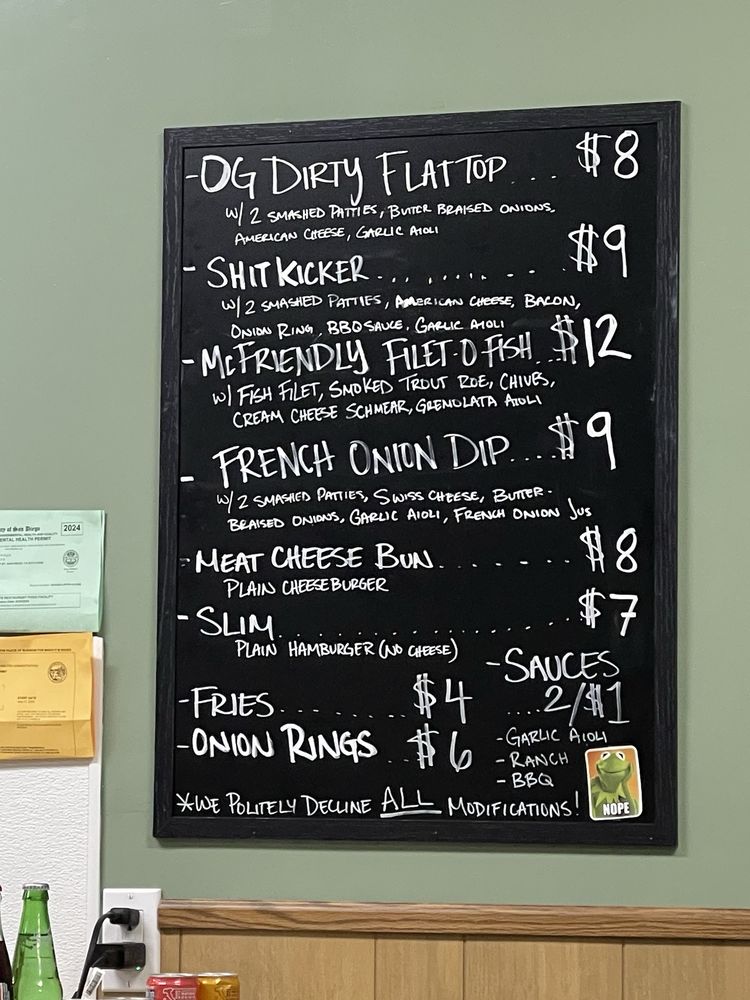 -OG DIRTY FLATTOP... $8
W/ 2 SMASHED PATTIES, BUTTER BRAISED ONIONS,
AMERICAN CHEESE, GARLIC AIOLI
- SHITKICKER........ $9
W/ 2 SMASHED PATTIES, AMERICAN CHEESE, BACON,
ONION RING, BBQ SAUCE, GARLIC AIOLI
- McFRIENDLY FILET-O FISH.. $12
W/ FISH FILET, SMOKED TROUT ROE, CHIVES,
CREAM CHEESE SCHMEAR, GREMOLATA AIOLI
- FRENCH ONION DIP.... $9
W/ 2 SMASHED PATTIES, SWISS CHEESE, BUTTER-
BRAISED ONIONS, GARLIC AIOLI, FRENCH ONION JUS
- MEAT CHEESE BUN....... $8
PLAIN CHEESEBURGER
- SLIM................ $7
PLAIN HAMBURGER (NO CHEESE)
- SAUCES
....2/$1
- GARLIC AIOLI
- RANCH
- BBQ
- FRIES......... $4
- ONION RINGS.. $6
*WE POLITELY DECLINE ALL MODIFICATIONS!
NOPE
ty of San Diego
2024
ENTAL HEALTH PERMIT